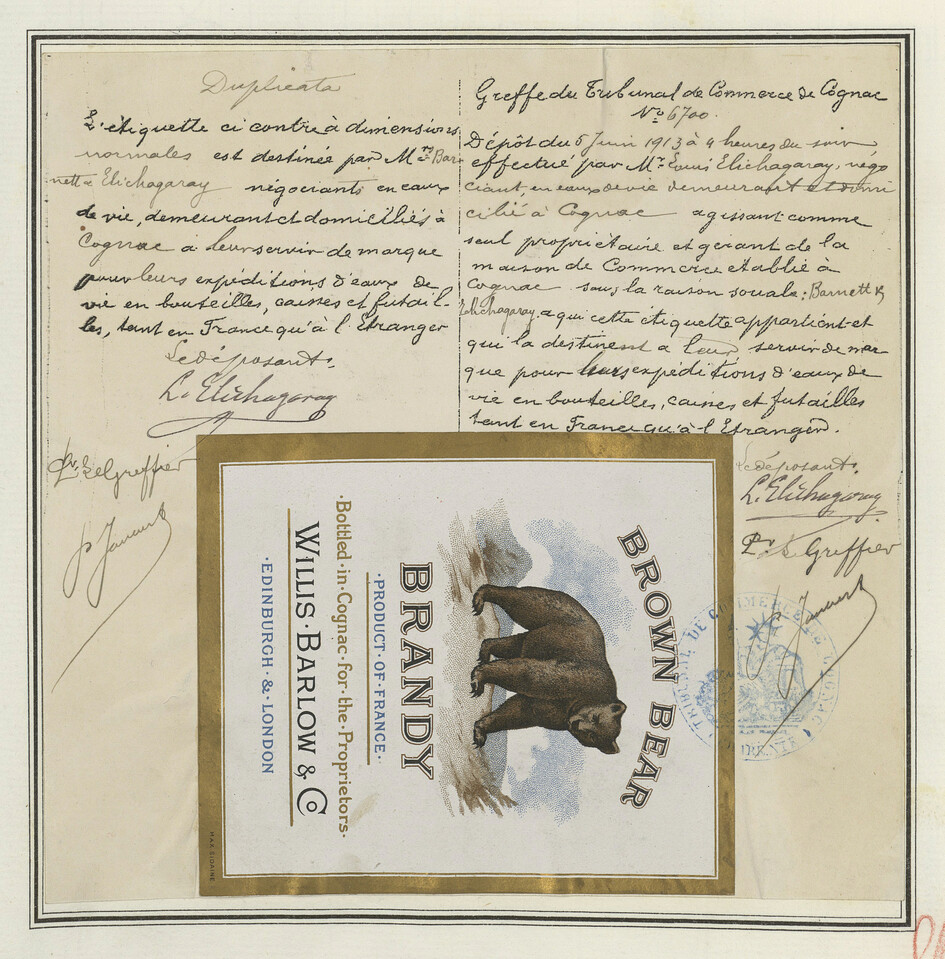 Duplicata
L'étiquette ci contre à dimensions
normales est destinée par Mrs Bar-
nett & Elichagaray négociants en eaux
de vie, demeurant et domiciliés à
Cognac à leur servir de marque
pour leurs expéditions d'eaux de
vie en bouteilles, caisses et futail-
les, tant en France qu'à l'Etranger
Le déposant.
L. Elichagaray
Pr. Le Greffier
Greffe du Tribunal de Commerce de Cognac
No 6700.
Dépôt du 5 Juin 1913 à 4 heures du soir
effectué par Mr Louis Elichagaray, négo
ciant, en eaux de vie demeurant et domi
cilié à Cognac agissant comme
seul propriétaire et gérant de la
maison de Commerce établie à
Cognac sous la raison sociale: Barnett &
Elichagaray, a qui cette étiquette appartient et
qui la destinent à leur servir de mar
que pour leurs expéditions d'eaux de
vie en bouteilles, caisses et futailles
tant en France qu'à l'Etranger.
Le déposant.
L. Elichagaray
Pr. Le Greffier
BROWN BEAR
BRANDY
·PRODUCT·OF·FRANCE·
·Bottled·in·Cognac·for·the·Proprietors·
WILLIS·BARLOW & Co
·EDINBURGH·&·LONDON
TRIBUNAL DE COMMERCE DE COGNAC
CHARENTE